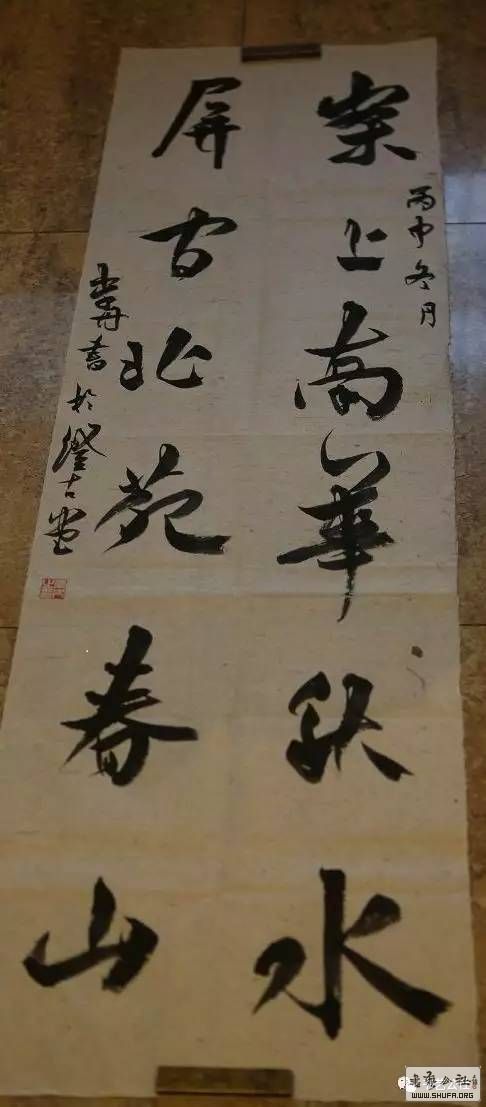 丙申冬月
案上南華秋水
屏間北苑春山
書於古堂
书艺公社
WWW.SHUFA.ORG